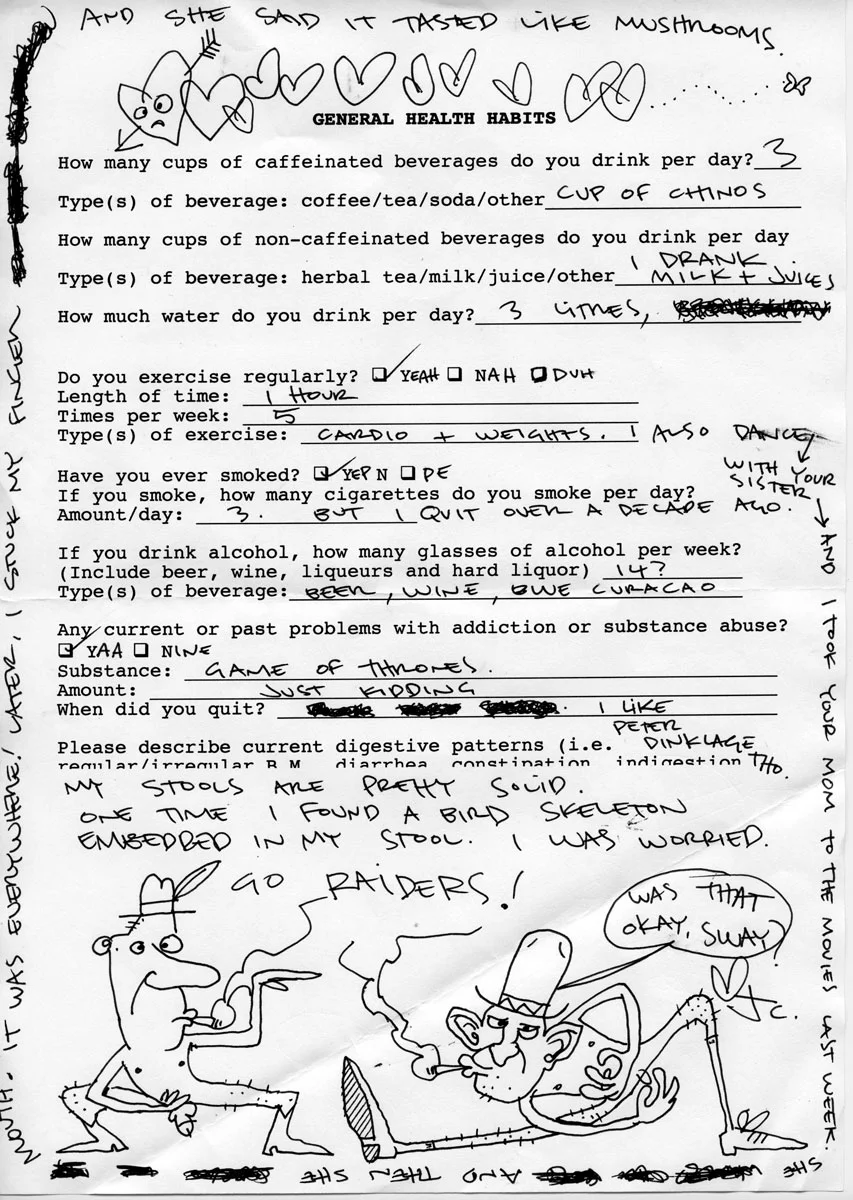 AND SHE SAID IT TASTED LIKE MUSHROOMS.
GENERAL HEALTH HABITS
How many cups of caffeinated beverages do you drink per day? 3
Type(s) of beverage: coffee/tea/soda/other CUP OF CHINOS
How many cups of non-caffeinated beverages do you drink per day
I DRANK
Type(s) of beverage: herbal tea/milk/juice/other MILK + JUICES
How much water do you drink per day? 3 LITRES,
Do you exercise regularly? YEAH NAH DUH
Length of time: 1 HOUR
Times per week: 5
Type(s) of exercise: CARDIO + WEIGHTS. I ALSO DANCE
WITH YOUR
SISTER
Have you ever smoked? YEP N OPE
If you smoke, how many cigarettes do you smoke per day?
Amount/day: 3. BUT I QUIT OVER A DECADE AGO.
If you drink alcohol, how many glasses of alcohol per week?
(Include beer, wine, liqueurs and hard liquor) 14?
Type(s) of beverage: BEER, WINE, BLUE CURACAO
Any current or past problems with addiction or substance abuse?
YAA NINE
Substance: GAME OF THRONES.
Amount: JUST KIDDING
When did you quit? I LIKE
PETER
Please describe current digestive patterns (i.e. DINKLAGE
regular/irregular B.M. diarrhea constipation indigestion THO.
MY STOOLS ARE PRETTY SOLID.
ONE TIME I FOUND A BIRD SKELETON
EMBEDDED IN MY STOOL. I WAS WORRIED.
GO RAIDERS!
WAS THAT
OKAY, SWAY?
JC.
AND I TOOK YOUR MOM TO THE MOVIES LAST WEEK.
SHE AND THEN SHE
MOUTH. IT WAS EVERYWHERE! LATER, I STUCK MY FINGER